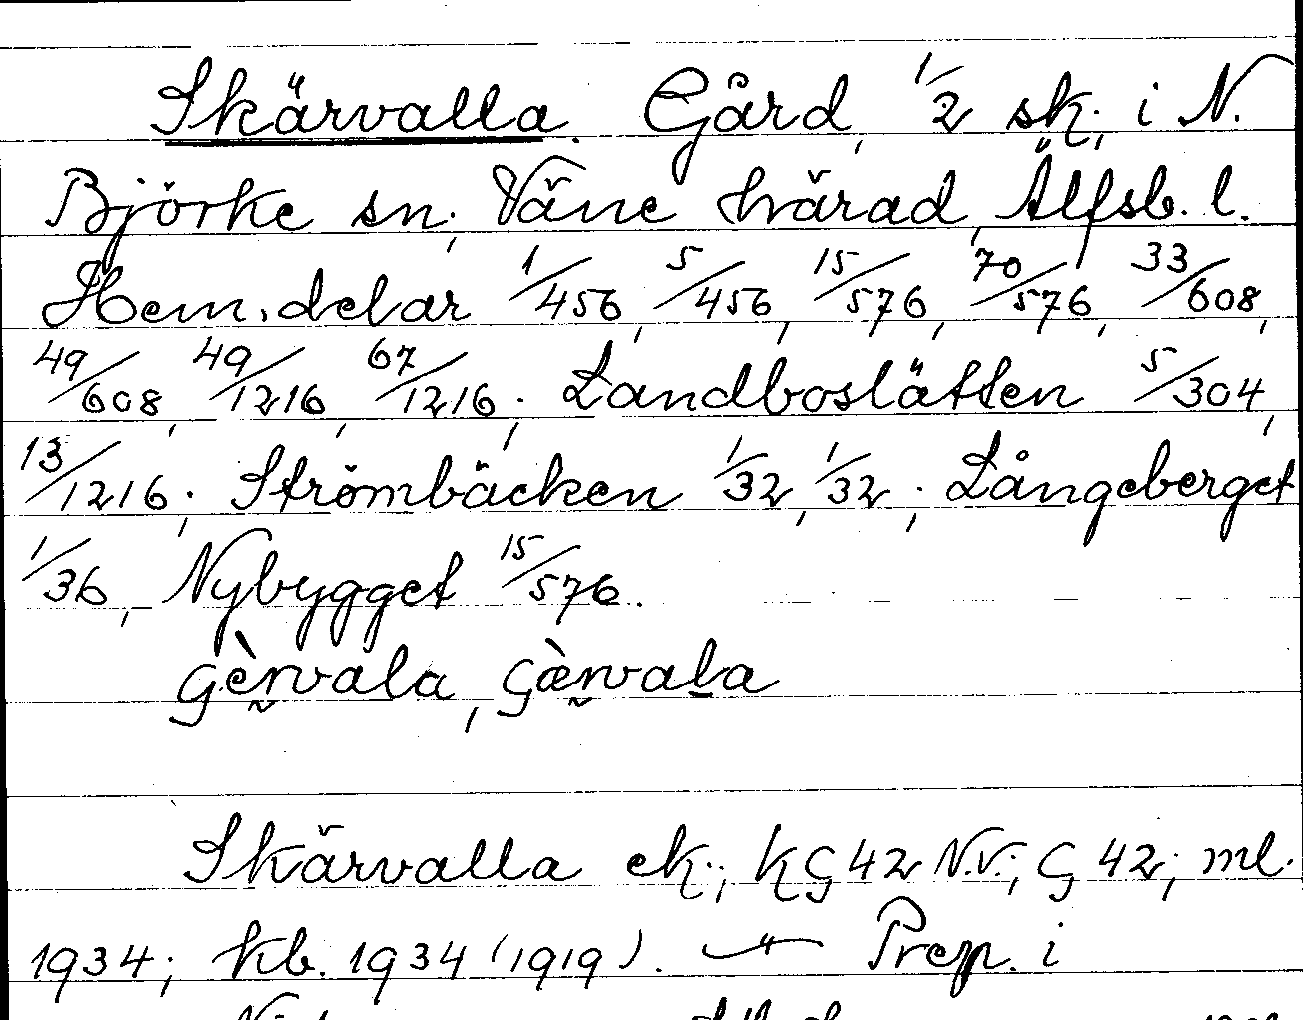 Skärvalla. Gård, 1/2 sk., i N.
Björke sn, Väne härad, Älfsb. l.
Hem. delar 1/456, 5/456, 15/576, 70/576, 33/608,
49/608, 49/1216, 67/1216; Landboslätten 5/304,
13/1216; Strömbäcken 1/32, 1/32; Långeberget
1/36, Nybygget 15/576.
gèrvala, gærvala
Skärvalla ek.; kG 42 N.V.; G 42; ml.
1934; kb. 1934 (1919). — " — Prep. i